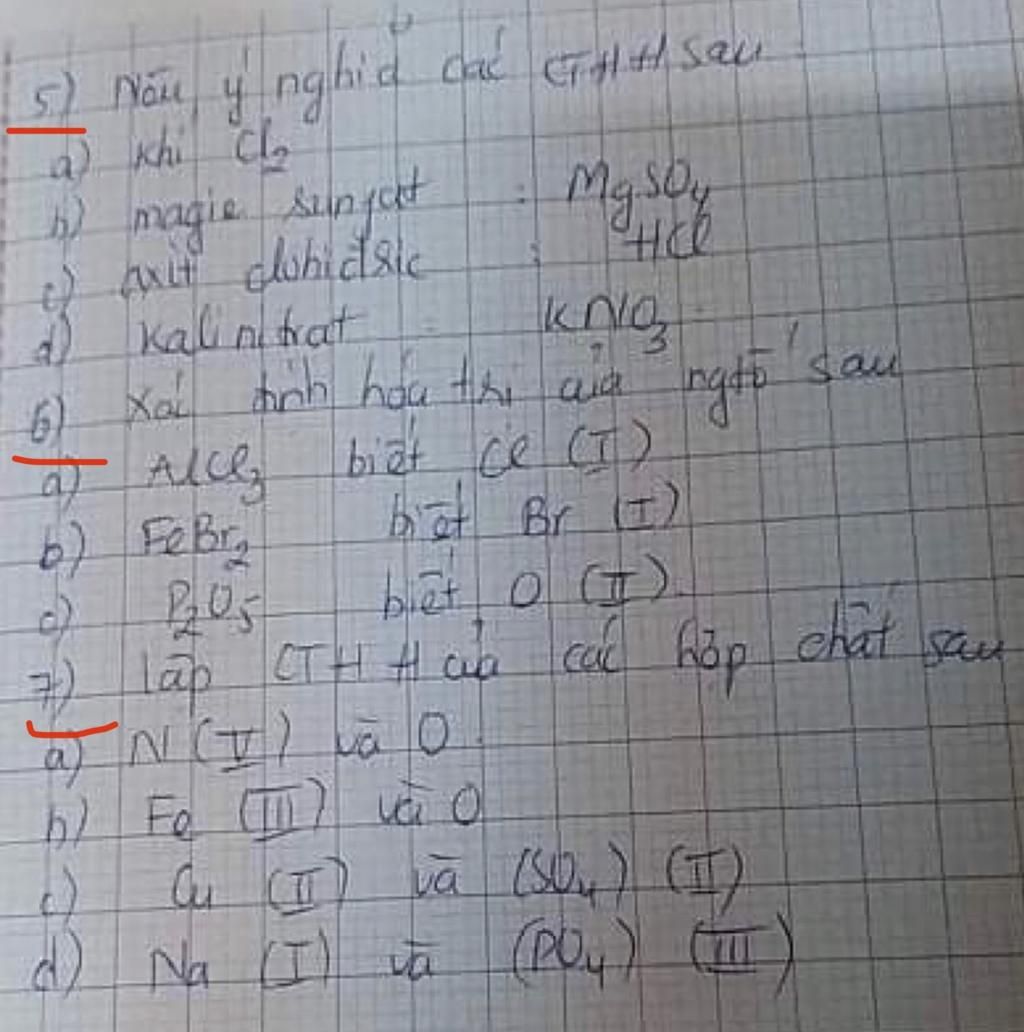 5) Nêu ý nghĩa các CTHH sau
a) khí Cl₂
b) magie sunfat : MgSO₄
c) axit clohidric : HCl
d) kali nitrat : KNO₃
6) Xác định hóa trị của ngtố sau
a) AlCl₃ biết Cl (I)
b) FeBr₂ biết Br (I)
c) P₂O₅ biết O (II)
7) lập CTHH của các hợp chất sau
a) N (V) và O
b) Fe (III) và O
c) Cu (II) và (SO₄) (II)
d) Na (I) và (PO₄) (III)